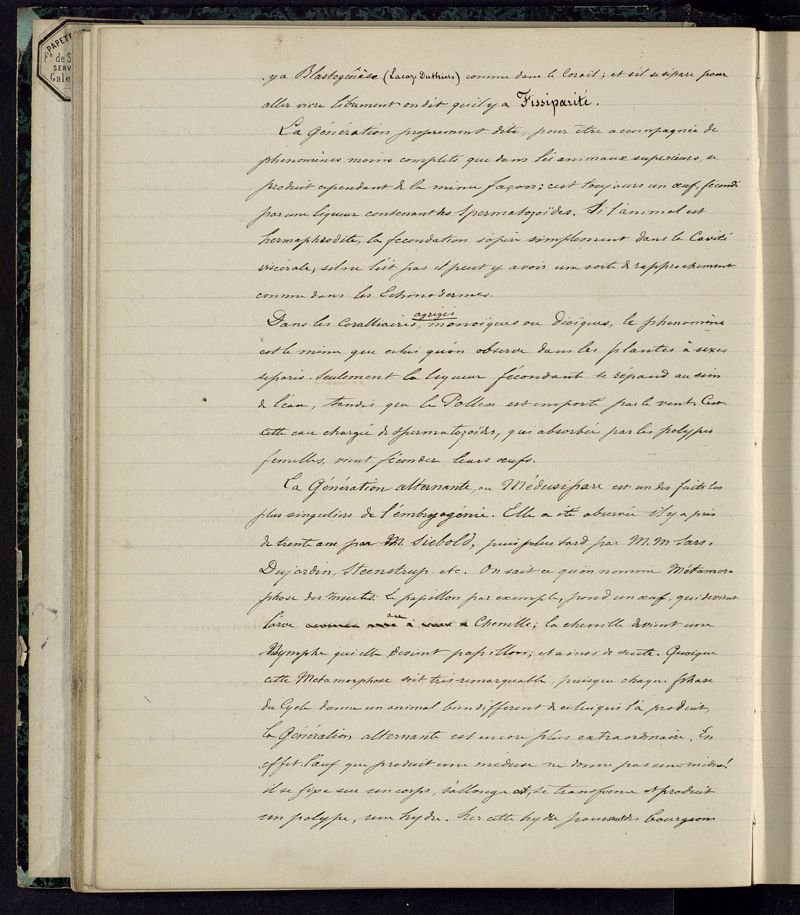 PAPET
Fg de S
SERV
Gale
y a Blastogénèse (Lacaze Duthiers) comme dans le Corail; et s'il se sépare pour
aller vivre librement on dit qu'il y a Fissiparité.
La Génération proprement dite, pour être accompagnée de
phénomènes moins complets que dans les animaux supérieurs, se
produit cependant de la même façon; c'est toujours un œuf, fécondé
par une liqueur contenant des Spermatozoïdes. Si l'animal est
hermaphrodite, la fécondation s'opère simplement dans la Cavité
viscérale; s'il ne l'est pas il peut y avoir une sorte de rapprochement
comme dans les Echinodermes.
agrégés
Dans les Coralliaires, monoïques ou dioïques, le phénomène
est le même que celui qu'on observe dans les plantes à sexes
séparés. Seulement la liqueur fécondante se répand au sein
de l'eau, tandis que le Pollen est emporté par le vent. C'est
cette eau chargée de spermatozoïdes, qui absorbée par les polypes
femelles, vient féconder leurs œufs.
La Génération alternante, ou Médusipare est un des faits les
plus singuliers de l'embryogénie. Elle a été observée il y a près
de trente ans par M. Siebold, puis plus tard par M.M. Sars,
Dujardin, Steenstrup etc. On sait ce qu'on nomme Métamor-
phose des Insectes. Le papillon par exemple, pond un œuf, qui devient
larve ou Chenille; la chenille devient une
Nymphe qui elle devient papillon; et ainsi de suite. Quoique
cette Métamorphose soit très-remarquable, puisque chaque phase
du Cycle donne un animal bien différent de celui qui l'a produit,
la Génération alternante est encore plus extraordinaire. En
effet l'œuf que produit une méduse ne donne pas une méduse!
il se fixe sur un corps, s'allonge, se transforme et produit
un polype, une hydre. Sur cette hydre poussent des bourgeons